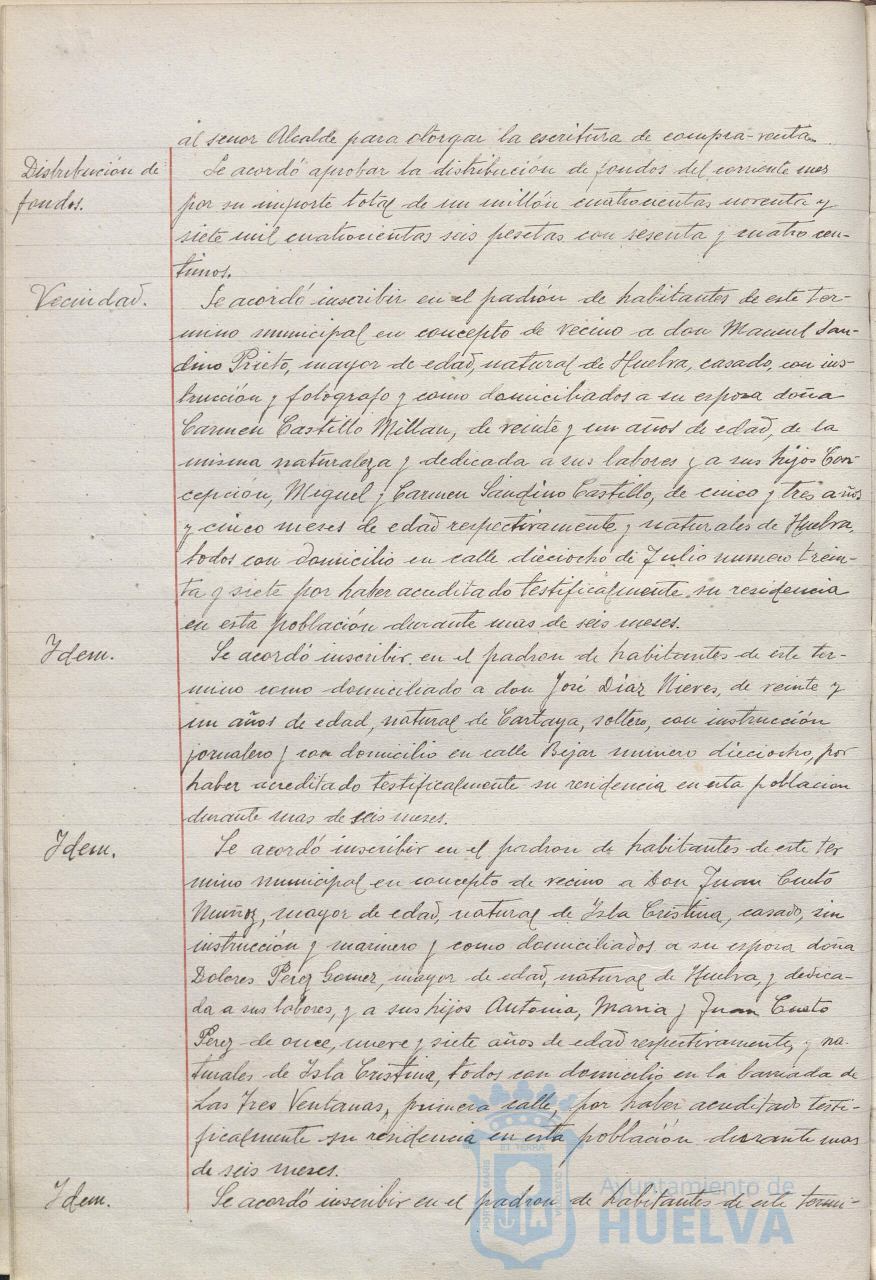 al señor Alcalde para otorgar la escritura de compra-venta.
Distribución de
fondos.
Se acordó aprobar la distribución de fondos del corriente mes
por su importe total de un millón cuatrocientas noventa y
siete mil cuatrocientas seis pesetas con sesenta y cuatro cen-
timos.
Vecindad.
Se acordó inscribir en el padrón de habitantes de este ter-
mino municipal en concepto de vecino a don Manuel San-
dino Prieto, mayor de edad, natural de Huelva, casado, con ins-
trucción y fotógrafo y como domiciliados a su esposa doña
Carmen Castillo Millan, de veinte y un años de edad, de la
misma naturaleza y dedicada a sus labores y a sus hijos Con-
cepción, Miguel y Carmen Sandino Castillo, de cinco y tres años
y cinco meses de edad respectivamente y naturales de Huelva,
todos con domicilio en calle dieciocho de Julio numero trein-
ta y siete por haber acreditado testificalmente su residencia
en esta población durante mas de seis meses.
Idem.
Se acordó inscribir en el padron de habitantes de este ter-
mino como domiciliado a don José Díaz Nieves, de veinte y
un años de edad, natural de Cartaya, soltero, con instrucción
jornalero y con domicilio en calle Bejar numero dieciocho, por
haber acreditado testificalmente su residencia en esta poblacion
durante mas de seis meses.
Idem.
Se acordó inscribir en el padron de habitantes de este ter
mino municipal en concepto de vecino a Don Juan Cueto
Muñoz, mayor de edad, natural de Isla Cristina, casado, sin
instrucción y marinero y como domiciliados a su esposa doña
Dolores Perez Gomez, mayor de edad, natural de Huelva y dedica-
da a sus labores, y a sus hijos Antonia, Maria y Juan Cueto
Perez de once, nueve y siete años de edad respectivamente, y na-
turales de Isla Cristina, todos con domicilio en la barriada de
Las Tres Ventanas, primera calle, por haber acreditado testi-
ficalmente su residencia en esta población durante mas
de seis meses.
Idem.
Se acordó inscribir en el padron de habitantes de este termi-
Ayuntamiento de
HUELVA